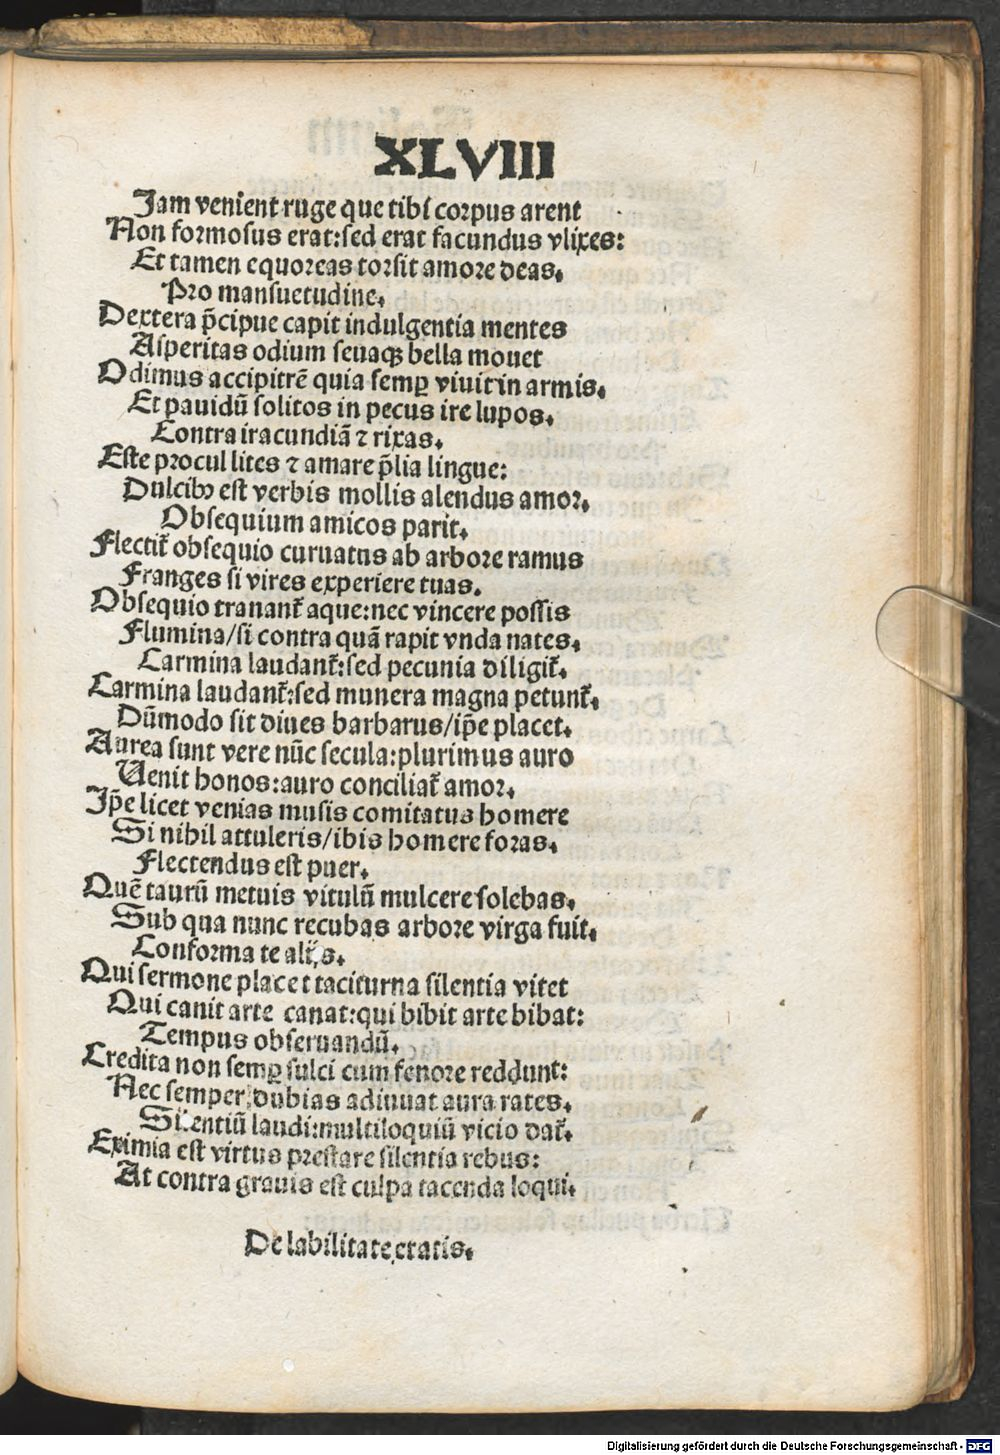 XLVIII
Jam venient ruge que tibi corpus arent
Non formosus erat:sed erat facundus vlixes:
Et tamen equoreas torsit amore deas.
Pro mansuetudine.
Dextera p̄cipue capit indulgentia mentes
Asperitas odium seuaqꝫ bella mouet
Odimus accipitrē quia semꝑ viuit in armis.
Et pauidū solitos in pecus ire lupos.
Contra iracundiā ⁊ rixas.
Este procul lites ⁊ amare p̄lia lingue:
Dulcibꝰ est verbis mollis alendus amor.
Obsequium amicos parit.
Flectit̄ obsequio curuatus ab arbore ramus
Franges si vires experiere tuas.
Obsequio tranant̄ aque:nec vincere possis
Flumina/si contra quā rapit vnda nates.
Carmina laudant̄:sed pecunia diligit̄.
Carmina laudant̄:sed munera magna petunt̄.
Dūmodo sit diues barbarus/ip̄e placet.
Aurea sunt vere nūc secula:plurimus auro
Uenit honos:auro conciliat̄ amor.
Ip̄e licet venias musis comitatus homere
Si nihil attuleris/ibis homere foras.
Flectendus est puer.
Quē taurū metuis vitulū mulcere solebas.
Sub qua nunc recubas arbore virga fuit.
Conforma te alijs.
Qui sermone placet taciturna silentia vitet
Qui canit arte canat:qui bibit arte bibat:
Tempus obseruandū.
Credita non semꝑ sulci cum fenore reddunt:
Nec semper dubias adiuuat aura rates.
Silentiū laudi:multiloquiū vicio dat̄.
Eximia est virtus prestare silentia rebus:
At contra grauis est culpa tacenda loqui.
De labilitate etatis.
Digitalisierung gefördert durch die Deutsche Forschungsgemeinschaft - DFG